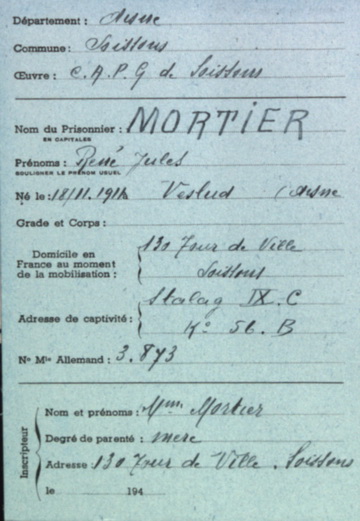 Département : Aisne
Commune : Soissons
Œuvre : C.A.P.G de Soissons
Nom du Prisonnier : MORTIER
EN CAPITALES
Prénoms : René Jules
SOULIGNER LE PRÉNOM USUEL
Né le : 18/11.1914 Veslud (Aisne
Grade et Corps :
Domicile en France au moment de la mobilisation : 130 Tour de Ville
Soissons
Adresse de captivité : Stalag IX.C
Ko 56.B
No Mle Allemand : 3.873
Inscripteur
Nom et prénoms : Mme Mortier
Degré de parenté : mère
Adresse 130 Tour de Ville. Soissons
le 194